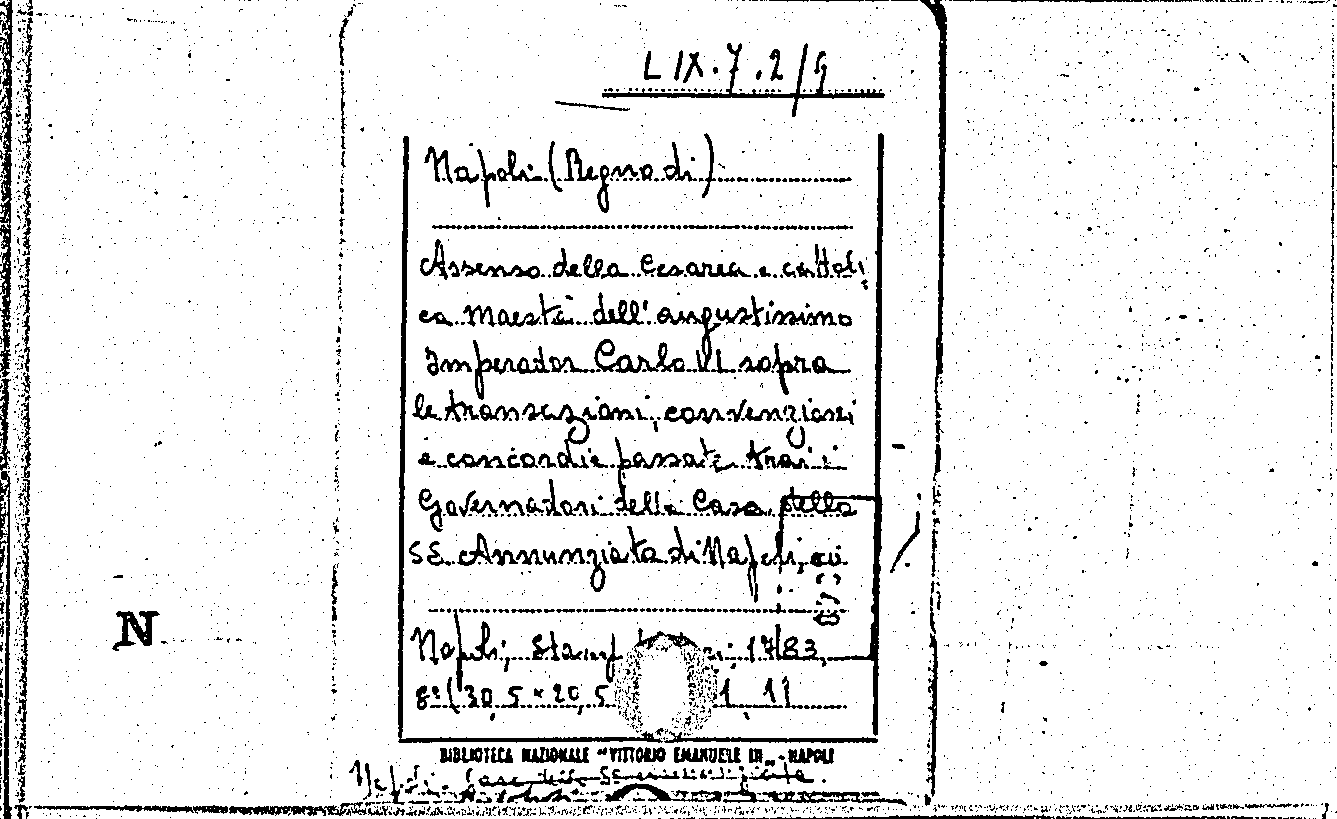 L IX.7.2/9
Napoli (Regno di)
Assenso della Cesarea e cattoli
ca Maestà dell'augustissimo
Imperador Carlo VI sopra
le transazioni, convenzioni
e concordie passate tra i
Governadori della Casa della
SS. Annunziata di Napoli,
N
Napoli, Stamp 1783,
8º (30,5 × 20,5
BIBLIOTECA NAZIONALE "VITTORIO EMANUELE III" - NAPOLI
Napoli. Casa della